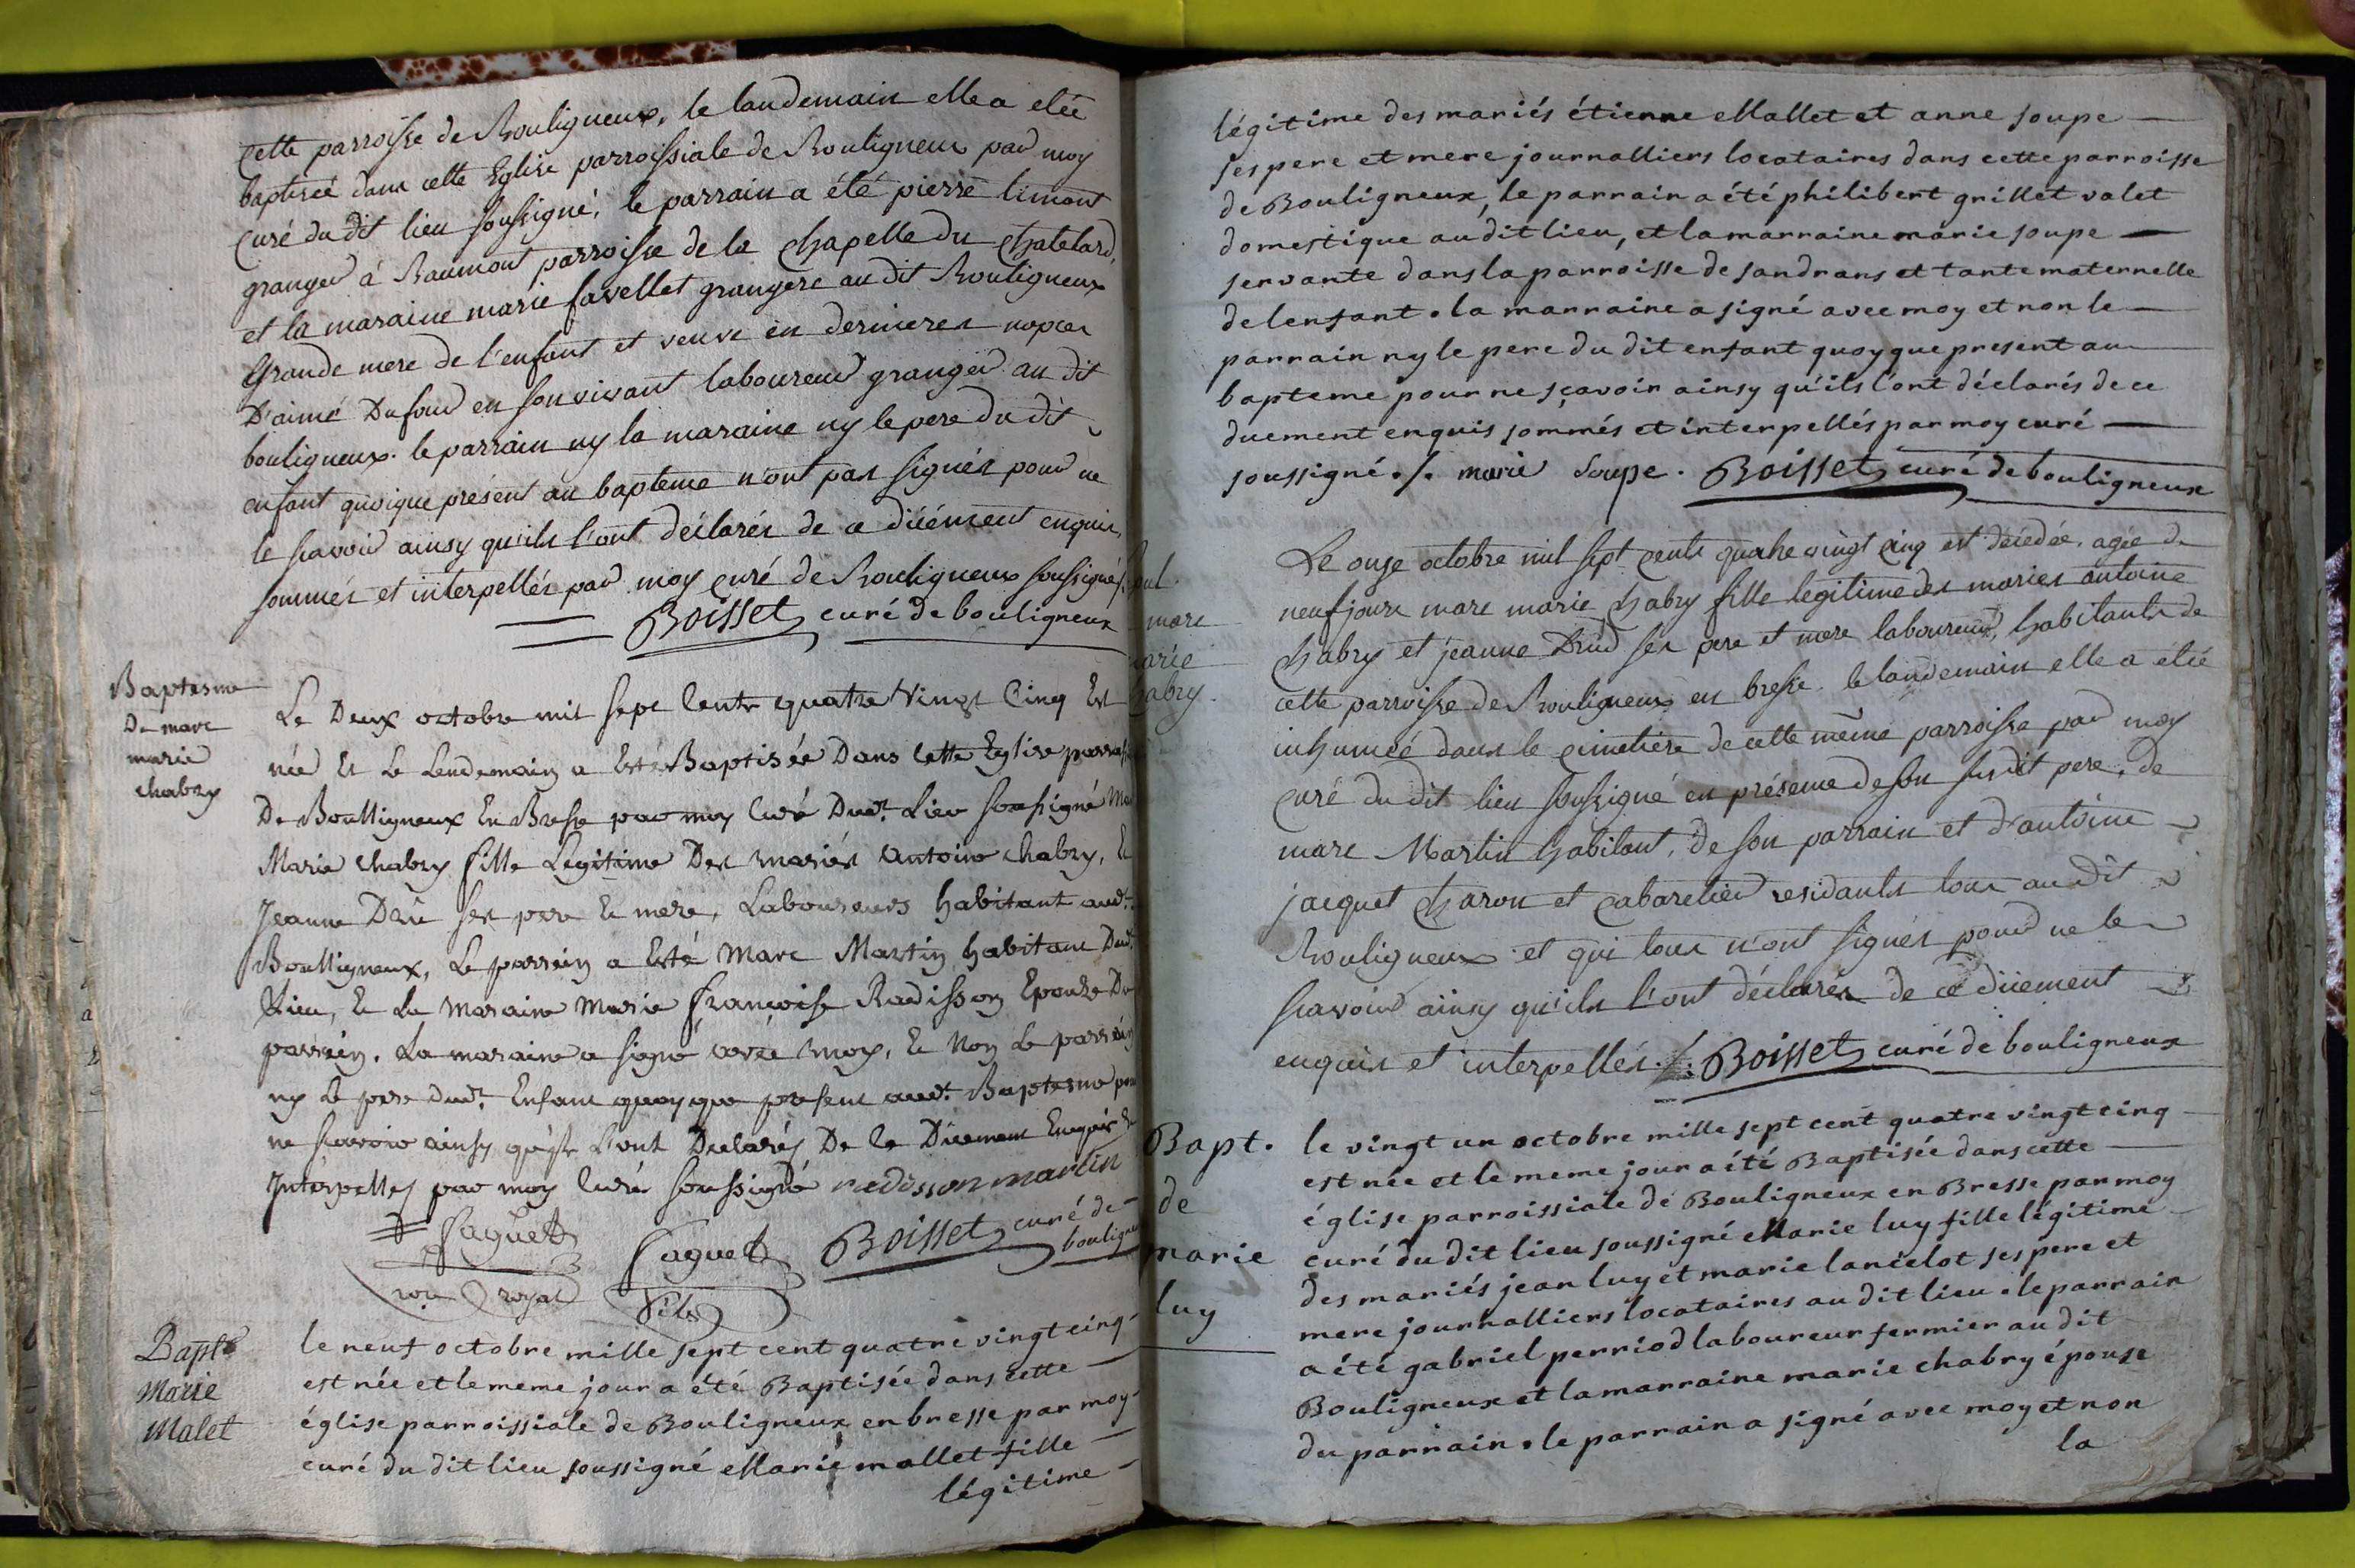 cette parroisse de Bouligneux, le landemain elle a etée
baptisée dans cette Eglise parroissiale de Bouligneux par moy
curé du dit lieu soussigné, le parrain a été pierre limont
granger à Baumont parroisse de la chapelle du chatelard,
et la maraine marie favellet grangere au dit Bouligneux
Grande mere de l'enfant et veuve en dernieres nopces
D'aimé Dufour en son vivant laboureur granger au dit
bouligneux. le parrain ny la maraine ny le pere du dit
enfant quoique présent au bapteme n'ont pas signés pour ne
le scavoir ainsy qu'ils l'ont déclarés de ce düement enquis,
sommés et interpellés par moy curé de Bouligneux soussigné
Boisset curé de bouligneux
Baptesme
De marc
marie
chabry
Le Deux octobre mil sept Cents quatre Vingt Cinq Est
née Et Le Lendemain a Esté Baptisée Dans Cette Eglise
De Boulligneux En Bresse par moy Curé Dud.t Lieu soussigné
Marie Chabry fille Legitime Des mariés Antoine Chabry, Et
Jeanne Drû ses pere Et mere, Laboureurs habitant aud.t
Boulligneux, Le parrein a Esté Marc Martin habitant Dud.t
Lieu, Et La Maraine Marie françoise Radisson Epouse Du
parrein. La maraine a signé avec moy, Et Non Le parrein
ny Le pere dud.t Enfant quoyque present aud.t Baptesme
ne scavoir ainsy qu'ils L'ont Declarés De Ce Düement Enquis
Interpellés par moy Curé soussigné radisson martin
Saguet
Saguet
Boisset curé de
royal
fils
Bapt.
Marie
Malet
le neuf octobre mille sept cent quatre vingt cinq
est née et le meme jour a été Baptisée dans cette
église parroissiale de Bouligneux en bresse par moy
curé du dit lieu soussigné Marie mallet fille
légitime
légitime des mariés étienne Mallet et anne soupe
ses pere et mere journalliers locataires dans cette parroisse
de Bouligneux, le parrain a été philibert grillet valet
domestique au dit lieu, et la marraine marie soupe
servante dans la parroisse de sandrans et tante maternelle
de lenfant. la marraine a signé avec moy et non le
parrain ny le pere du dit enfant quoy que present au
bapteme pour ne sçavoir ainsy qu'ils l'ont déclarés de ce
duement enquis sommés et interpellés par moy curé
soussigné ./. marie soupe. Boisset curé de bouligneux
marc
marie
chabry
Le onze octobre mil sept cents quatre vingt cinq est décédée, agée de
neuf jours marc marie chabry fille legitime des mariés antoine
chabry et jeanne Drud ses pere et mere laboureurs, habitants de
cette parroisse de Bouligneux en bresse. le landemain elle a étée
inhumée dans le cimetiere de cette meme parroisse par moy
curé du dit lieu soussigné en présence de son susdit pere, de
marc Martin habitant, de son parrain et d'antoine
jacquet charon et cabaretier residants tous au dit
Bouligneux et qui tous n'ont signés pour ne le
scavoir ainsy qu'ils l'ont déclarés de ce düement
enquis et interpellés. /. Boisset curé de bouligneux
Bapt.
de
marie
luy
le vingt un octobre mille sept cent quatre vingt cinq
est née et le meme jour a été Baptisée dans cette
église parroissiale de Bouligneux en Bresse par moy
curé du dit lieu soussigné Marie luy fille légitime
des mariés jean luy et marie lancelot ses pere et
mere journalliers locataires au dit lieu. le parrain
a été gabriel perriod laboureur fermier au dit
Bouligneux et la marraine marie chabry épouse
du parrain. le parrain a signé avec moy et non
la